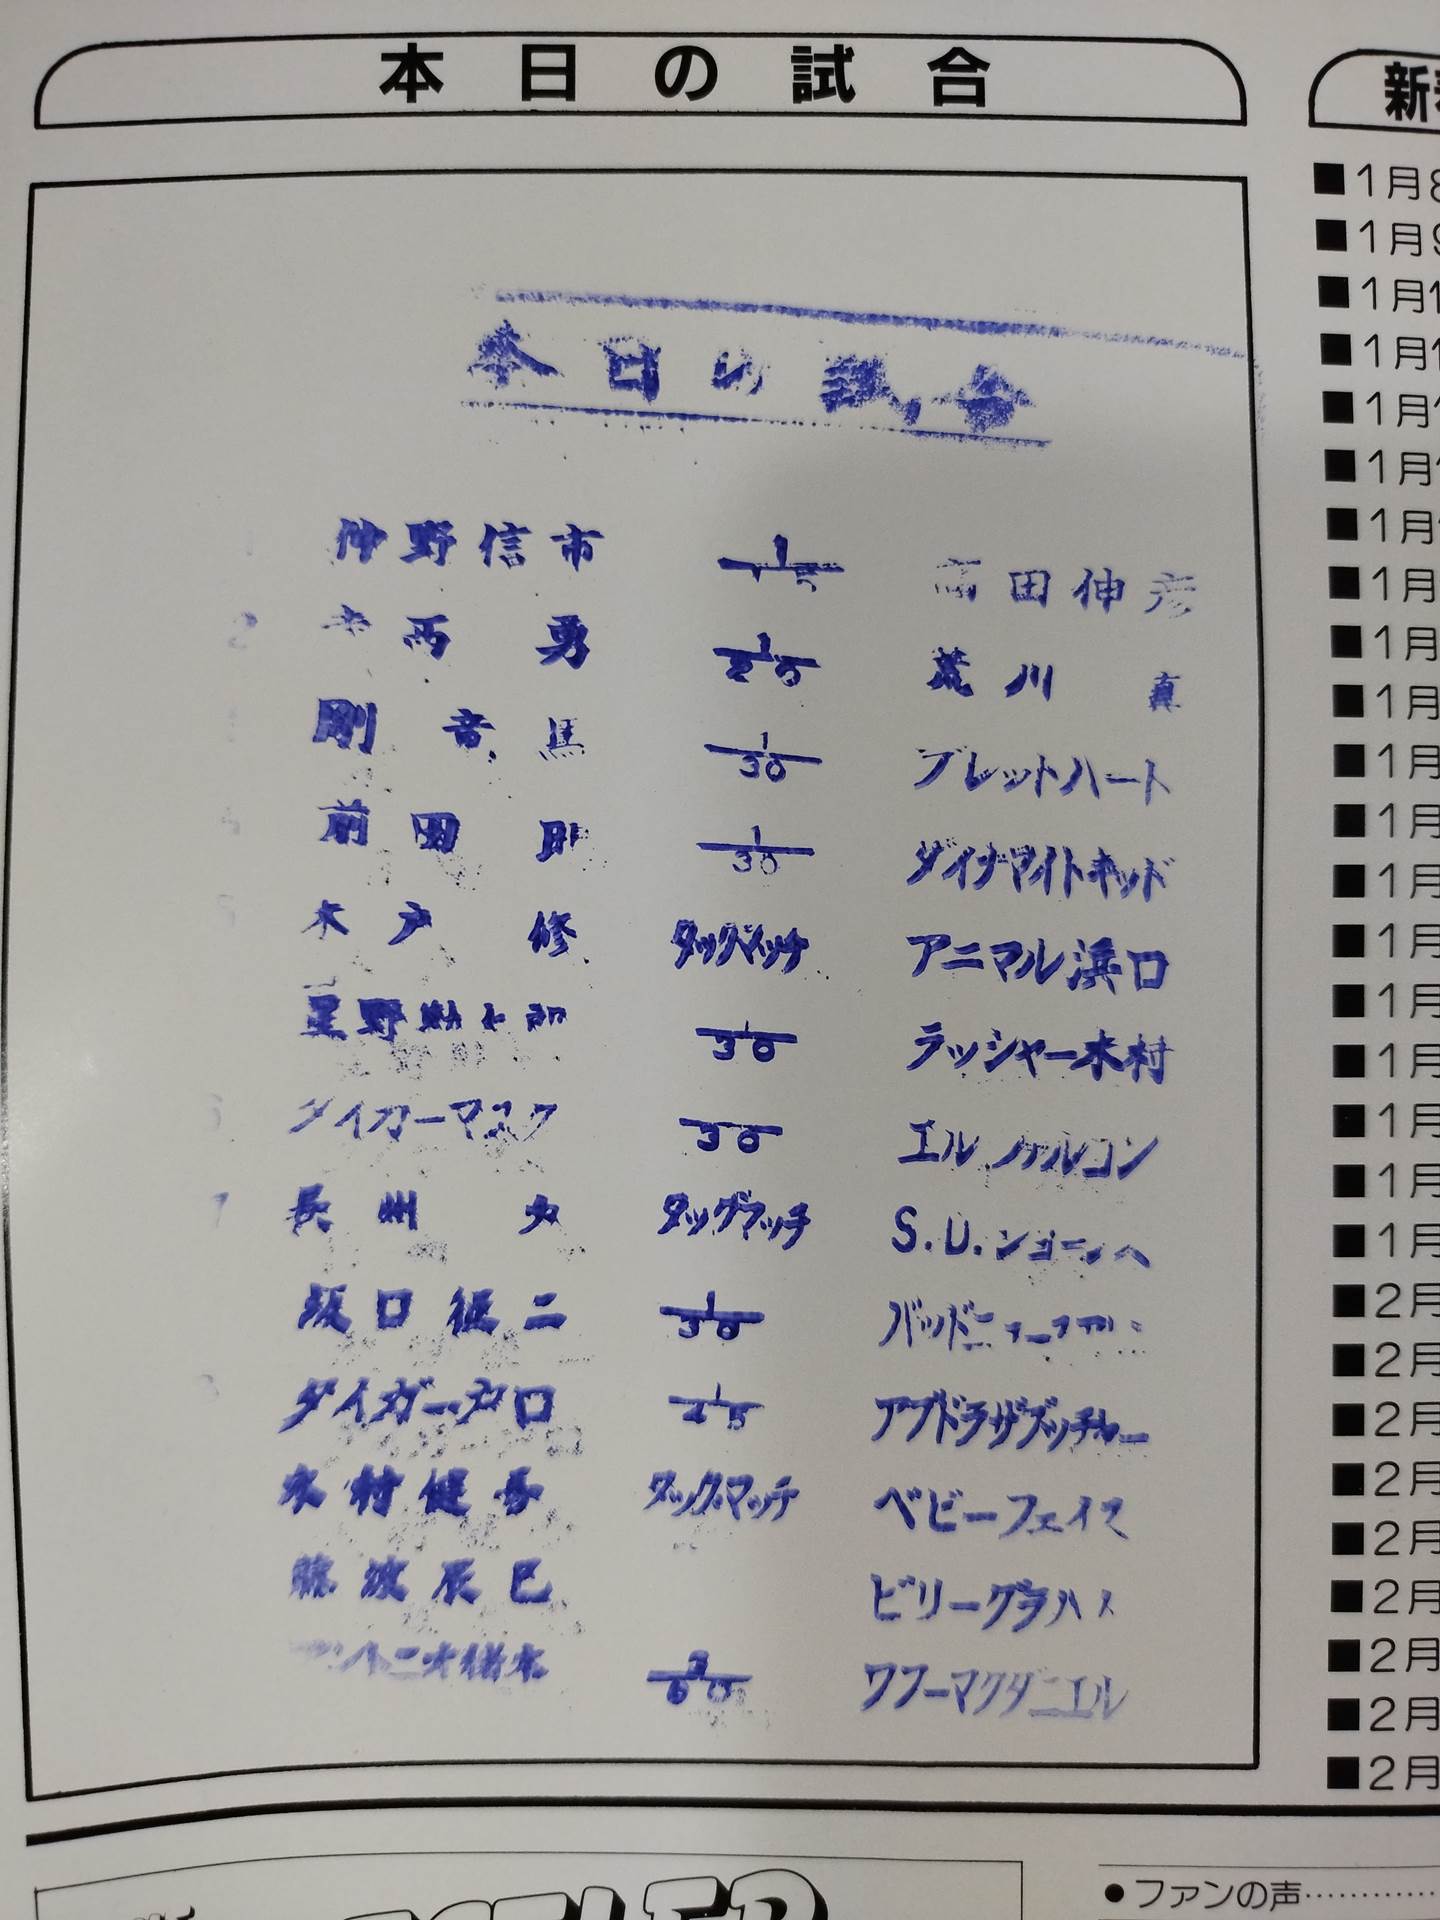 本日の試合
本日の試合
仲野信市 1/15 高田伸彦
2 寺西 勇 1/20 荒川 真
剛 竜馬 1/30 ブレットハート
4 前田 明 1/30 ダイナマイトキッド
5 木戸 修 タッグマッチ アニマル浜口
星野勘太郎 1/30 ラッシャー木村
6 タイガーマスク 30 エル
7 長州 力 タッグマッチ S.U.
坂口征二 1/30 バッドニュース
ダイガー戸口 1/45 アブドラザブッチャー
木村健吾 タッグマッチ ベビーフェイス
藤波辰巳 ビリーグラハム
アントニオ猪木 3/60 ワフーマクダニエル
■1月
■1月
■1月
■1月
■1月
■1月
■1月
■1月
■1月
■1月
■1月
■1月
■1月
■1月
■1月
■1月
■1月
■1月
■1月
■2月
■2月
■2月
■2月
■2月
■2月
■2月
■2月
■2月
●ファンの声…………